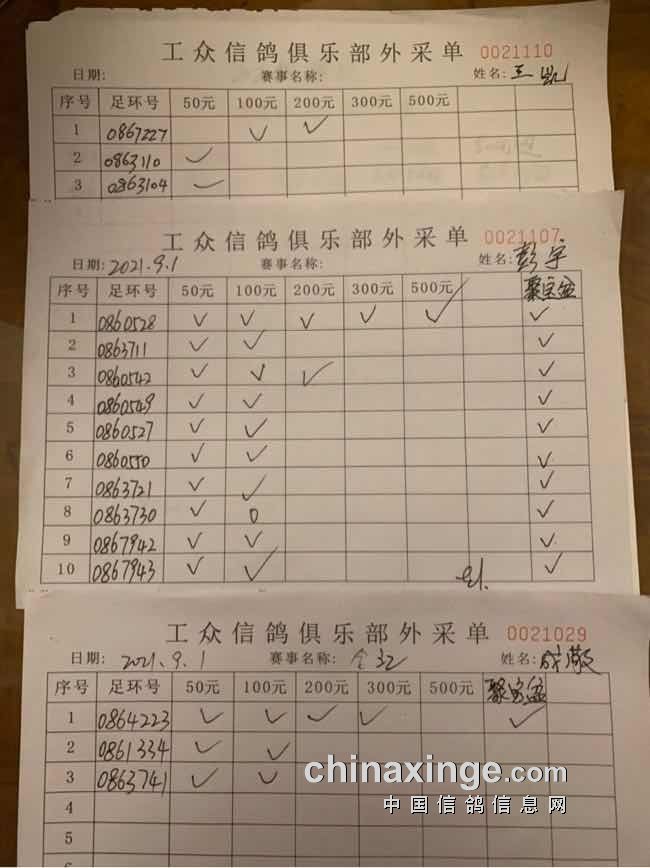 工众信鸽俱乐部外采单 0021110
日期: 赛事名称: 姓名: 王凯
序号 足环号 50元 100元 200元 300元 500元
1 0867227 ✓ ✓
2 0863110 ✓
3 0863104 ✓
工众信鸽俱乐部外采单 0021107
日期: 2021.9.1 赛事名称: 姓名: 彭宇
序号 足环号 50元 100元 200元 300元 500元 聚宝盆
1 0860528 ✓ ✓ ✓ ✓ ✓ ✓
2 0863711 ✓ ✓ ✓
3 0860542 ✓ ✓ ✓ ✓
4 0860549 ✓ ✓ ✓
5 0860527 ✓ ✓ ✓
6 0860550 ✓ ✓ ✓
7 0863721 ✓ ✓ ✓
8 0863730 ✓ 0 ✓
9 0867942 ✓ ✓ ✓
10 0867943 ✓ ✓ ✓
工众信鸽俱乐部外采单 0021029
日期: 2021.9.1 赛事名称: 姓名:
序号 足环号 50元 100元 200元 300元 500元 聚宝盆
1 0864223 ✓ ✓ ✓ ✓ ✓
2 0861334 ✓ ✓
3 0863741 ✓ ✓
chinaxinge.com
4
中国信鸽信息网
5